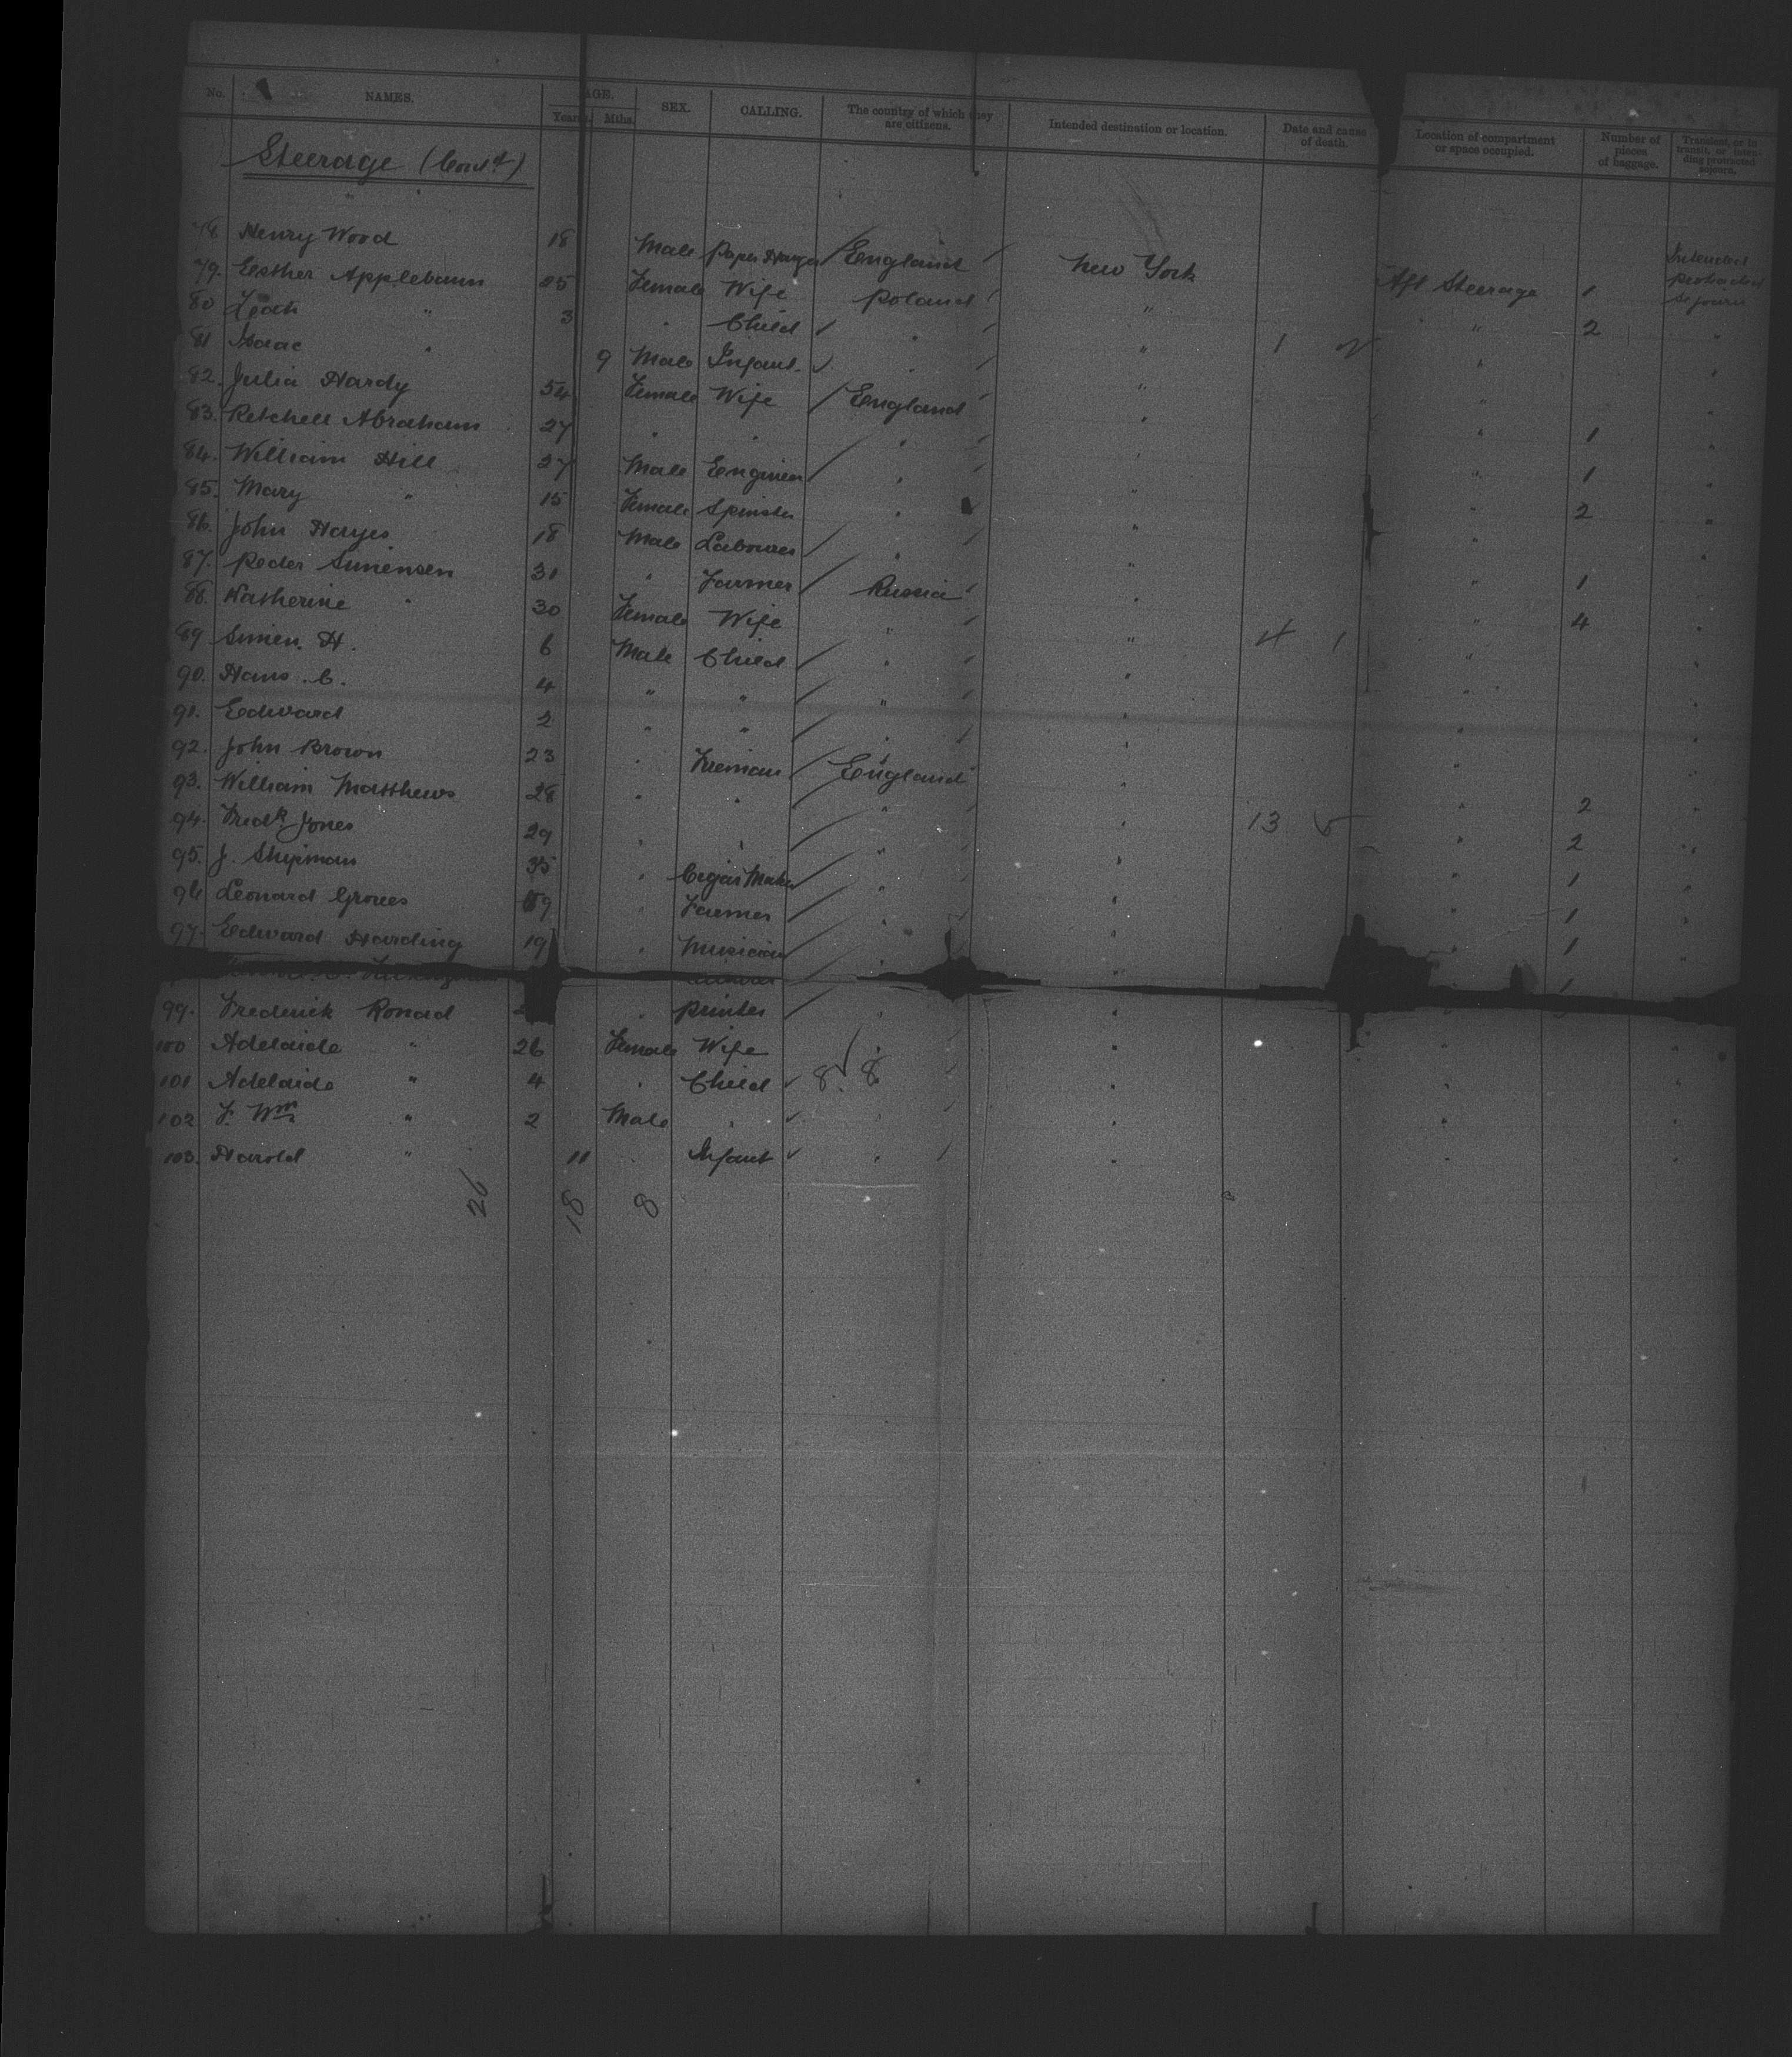 No. NAMES. AGE. Years. Mths. SEX. CALLING. The country of which they are citizens. Intended destination or location. Date and cause of death. Location of compartment or space occupied. Number of pieces of baggage. Transient, or in transit, or intending protracted sojourn.
Steerage (Cont'd)
78 Henry Wood 18 Male Paper Hanger England New York Aft Steerage 1 Intended protracted sojourn
79. Esther Applebaum 25 Female Wife Poland " " 2 "
80 Leah " 3 " Child " " 1 "
81 Isaac " 9 Male Infant " " " "
82. Julia Hardy 54 Female Wife England " " 1 "
83. Retchell Abraham 27 " " " " " 1 "
84. William Hill 27 Male Engineer " " " 2 "
85. Mary " 15 Female Spinster " " " "
86. John Hayes 18 Male Labourer " " " 1 "
87. Peder Simensen 31 " Farmer Russia " " 4 "
88. Katherine " 30 Female Wife " " 4 1 " "
89 Simen. H. 6 Male Child " " " "
90. Hans. C. 4 " " " " " "
91. Edward 2 " " " " " "
92. John Brown 23 " Fireman England " " 2 "
93. William Matthews 28 " " " " 13 " 2 "
94. Fredk Jones 29 " " " " " 1 "
95. J. Shipman 35 " Cigar Maker " " " 1 "
96 Leonard Groves 19 " Farmer " " " 1 "
97. Edward Harding 19 " Musician " "
99. Frederick Ronad " Printer " " " "
100 Adelaide " 26 Female Wife " " " "
101 Adelaide " 4 " Child 8 8 " " "
102 F. Wm " 2 Male " " " " "
103. Harold " 11 " Infant " " " "
26 18 8